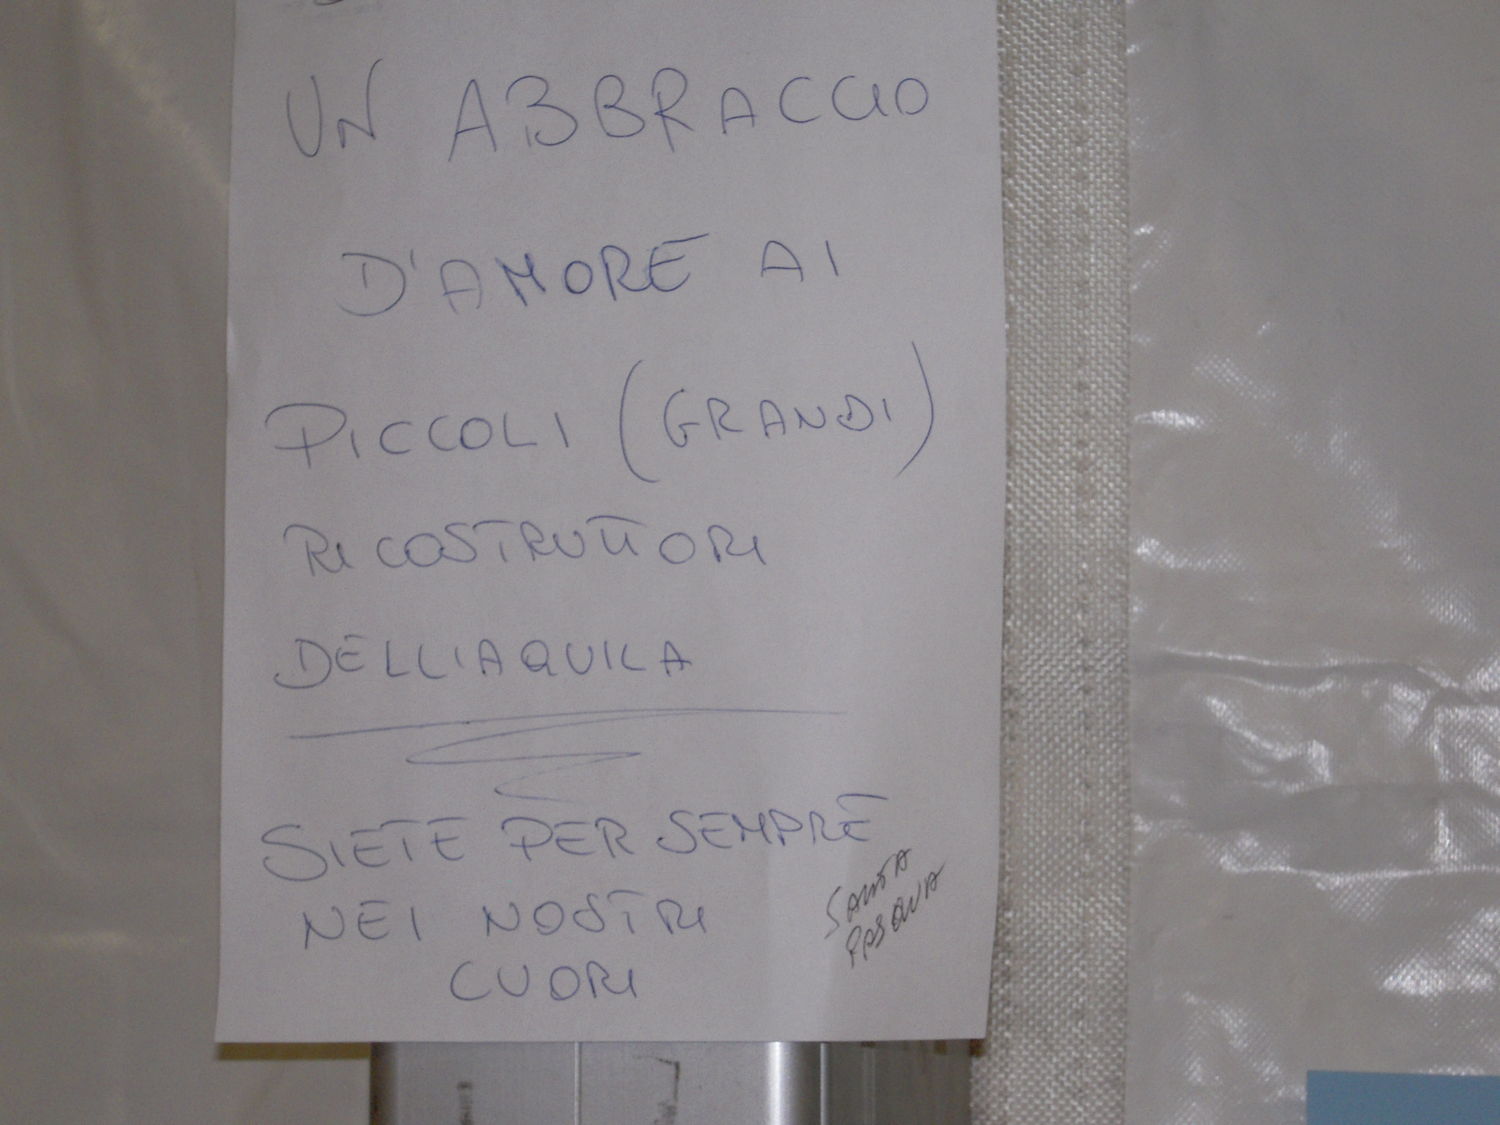 UN ABBRACCIO
D'AMORE AI
PICCOLI (GRANDI)
RICOSTRUTTORI
DELL'AQUILA
SIETE PER SEMPRE
NEI NOSTRI
CUORI
SANTA
PASQUA